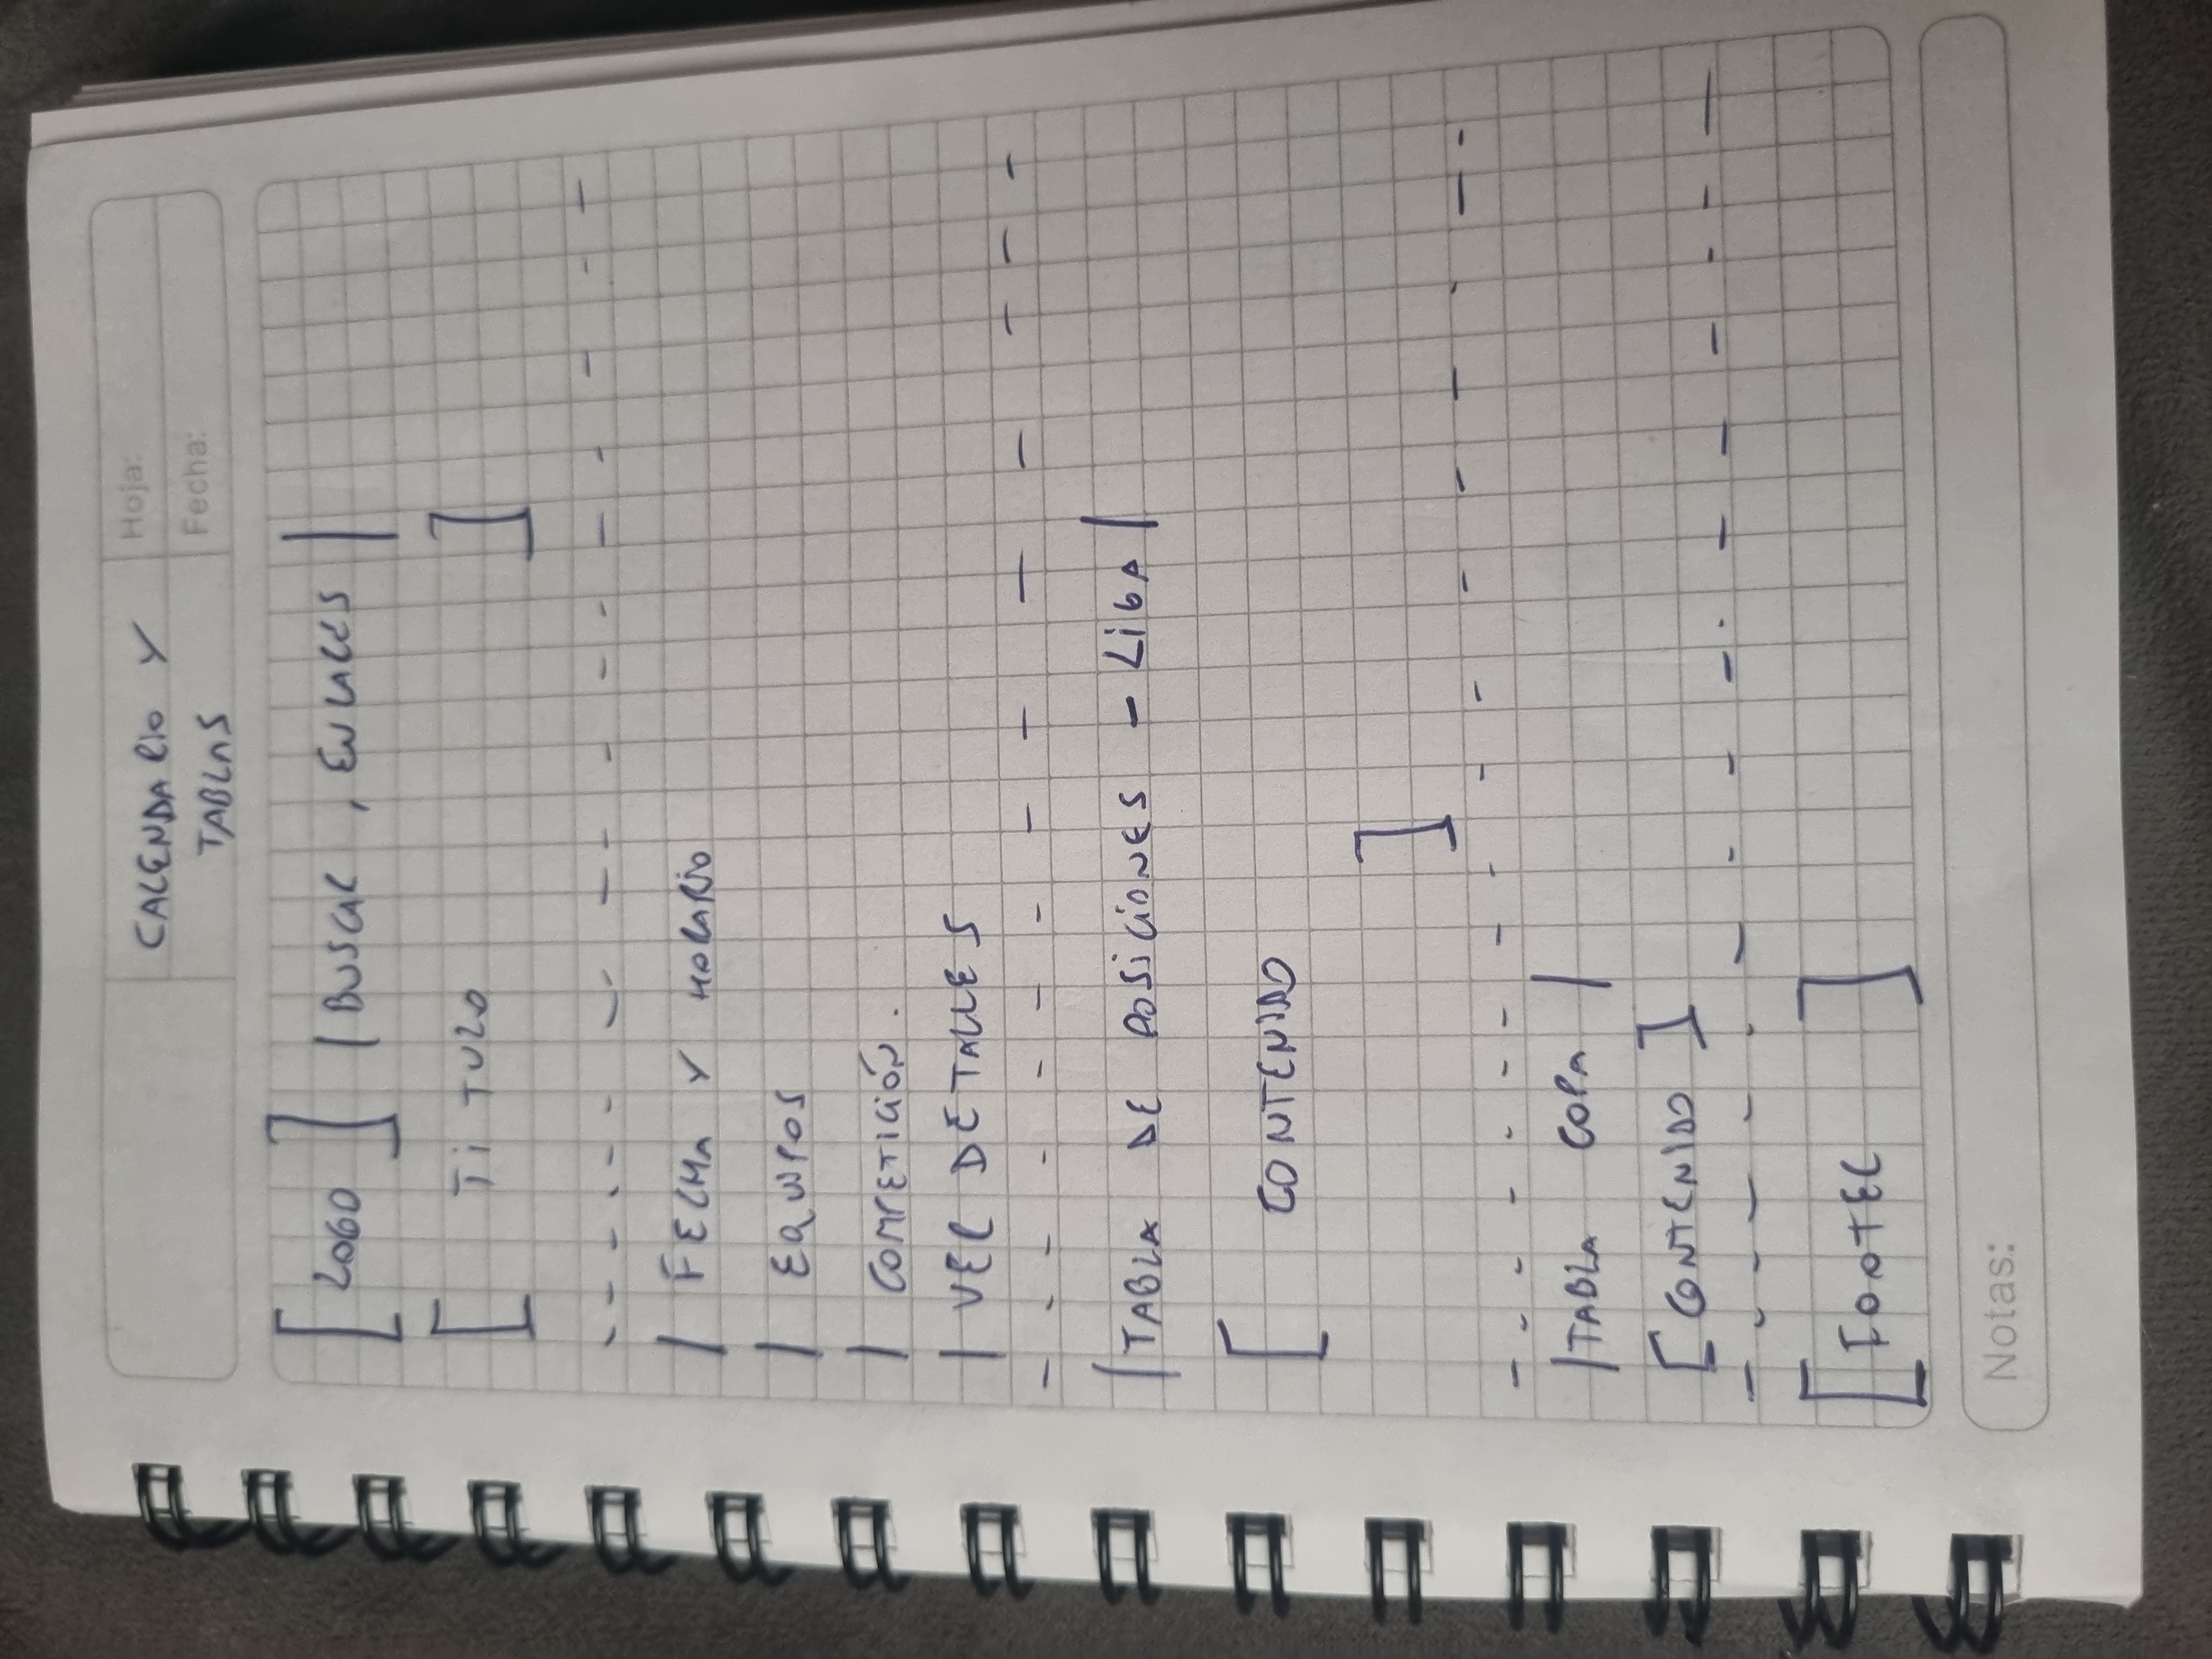 CALENDARIO Y
TABLAS
Hoja:
Fecha:
[LOGO] | BUSCAR, ENLACES |
[TiTULO]
| FECHA Y HORARiO
| EQUIPOS
| COMPETICIÓN.
| VER DETALLES
| TABLA DE POSiCiONES - LiGA |
[CONTENIDO
]
| TABLA COPA |
[CONTENIDO]
[FOOTER]
Notas: